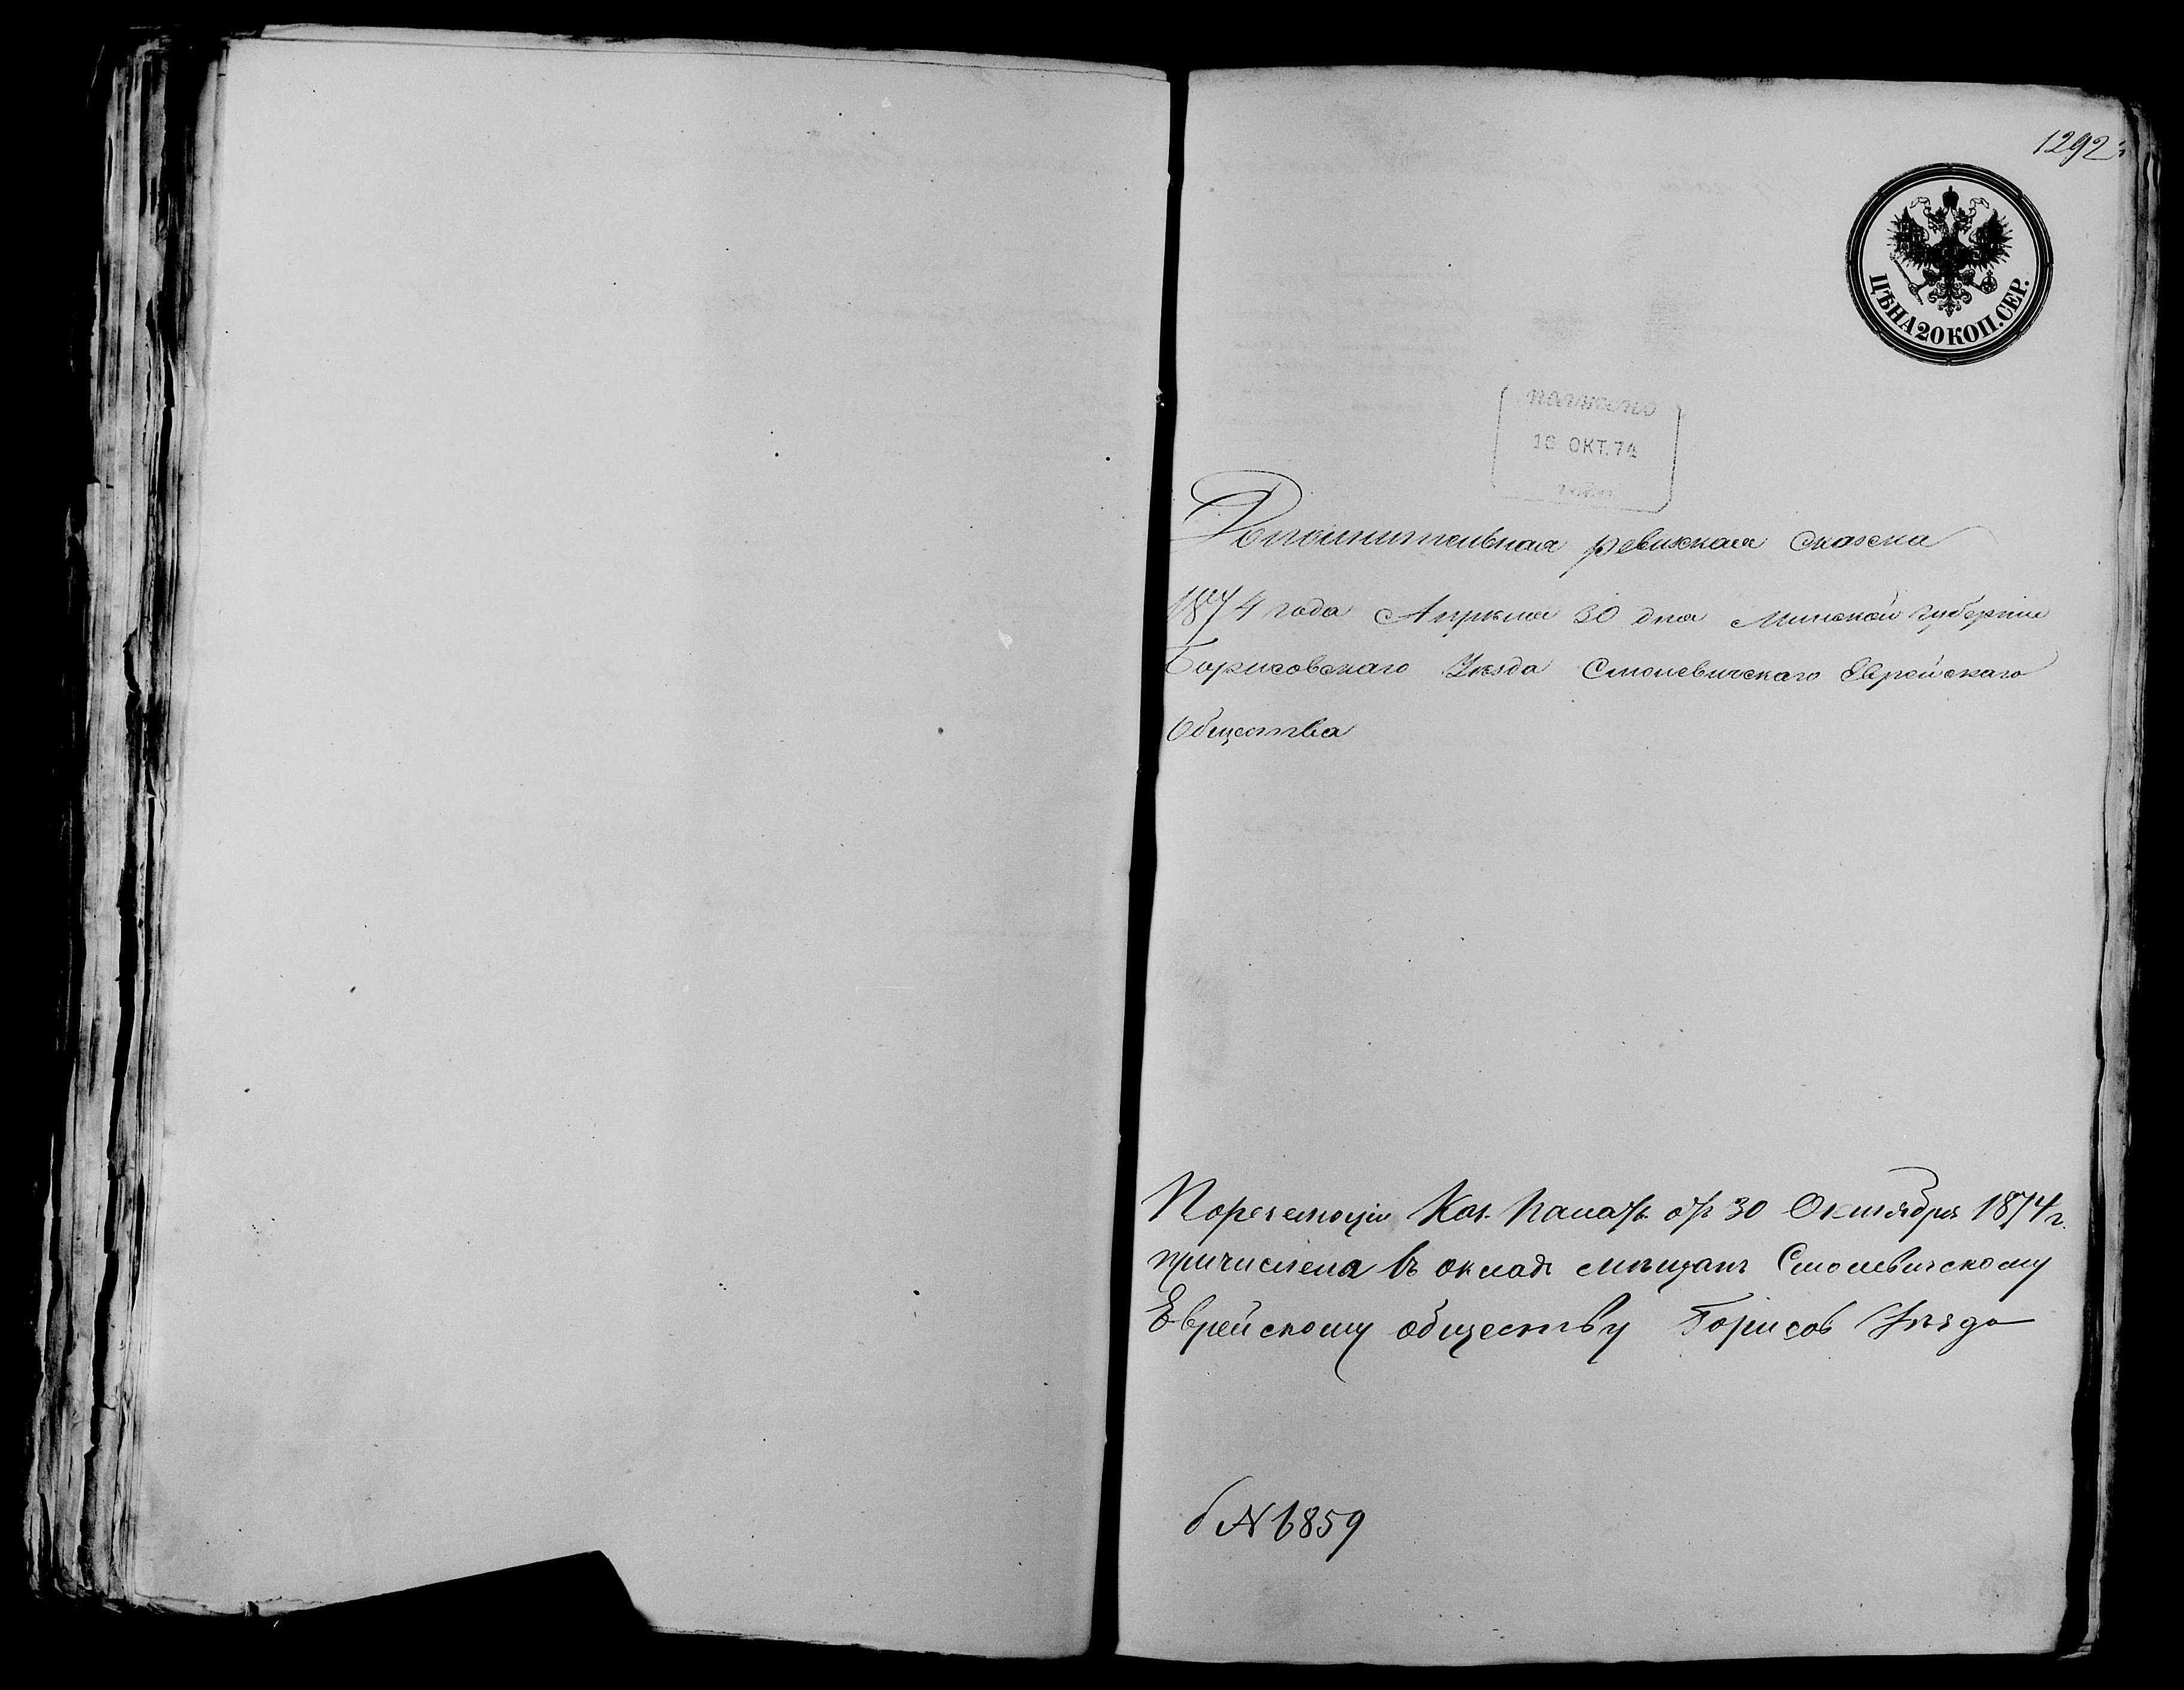 1292
ЦѢНА 20 КОП. СЕР.
получено
16 ОКТ. 74
Дополнительная ревизская сказка
1874 года Апрѣля 30 дня Минской губерніи
Борисовскаго Уѣзда Смолевичскаго Еврейскаго
Общества
По резолюціи Каз. Палаты отъ 30 Октября 1874 г.
причислена въ окладъ мѣщанъ Смолевичскому
Еврейскому обществу Борисов Уѣзда
б № 6859